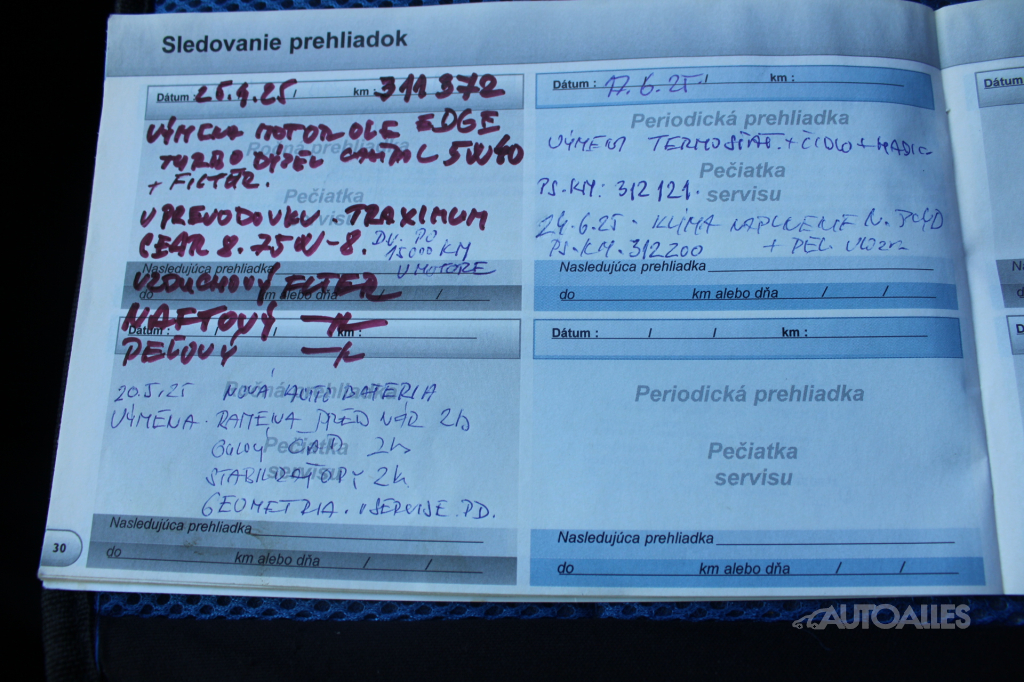 Sledovanie prehliadok
Dátum : 25.4.25 / km : 311 372
Ročná prehliadka
VÝMENA MOTOR OLE EDGE
TURBO DÝZEL CASTROL 5W40
+ FILTER.
Pečiatka
servisu
V PREVODOVKU. TRAXIMUM
GEAR 8. 75W-8. DV. PO
15000 KM
V MOTORE
Nasledujúca prehliadka
do km alebo dňa / /
VZDUCHOVÝ FILTER
NAFTOVÝ —//—
Dátum : / km :
PEĽOVÝ —//—
Ročná prehliadka
20.5.25 NOVÁ AUTO BATERIA
VÝMENA. RAMENA PRED NÁR 2k
Pečiatka
servisu
2k
STABILIZÁTORY 2k
GEOMETRIA. V SERVISE. PD.
Nasledujúca prehliadka
do km alebo dňa / /
30
Dátum : 17.6.25 / km :
Periodická prehliadka
VÝMENA TERMOSTAT. + ČIDLO + HADIC
Pečiatka
servisu
PS. KM: 312 121.
24.6.25. KLIMA NAPLNENIE
PS. KM. 312200 + PEL. VLOZKA
Nasledujúca prehliadka
do km alebo dňa / /
Dátum : / / km :
Periodická prehliadka
Pečiatka
servisu
Nasledujúca prehliadka
do km alebo dňa / /
Dátum
AUTOALLES